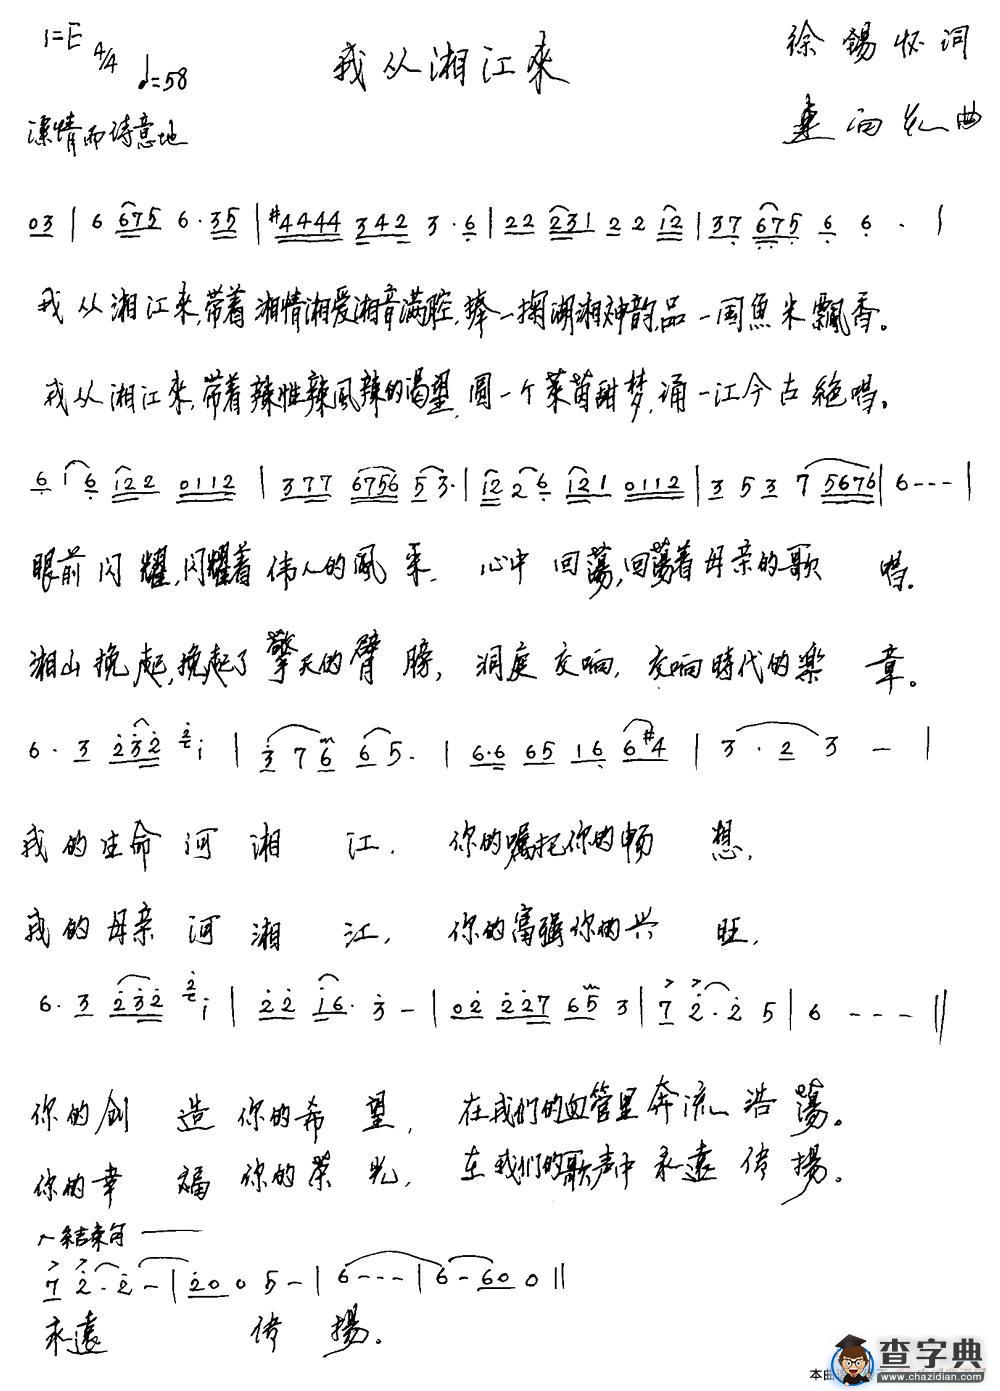 1=E 4/4 ♩=58
我从湘江來
徐锡怀词
曲
深情而诗意地
03 | 6 675 6·35 | #4444 342 3·6 | 22 231 22 12 | 37 675 6 6 · |
我从湘江來,带着湘情湘爱湘音满腔,捧一掬湖湘神韵,品一国魚米飄香。
我从湘江來,带着辣性辣风辣的渴望,圆一个莱茵甜梦,诵一江今古絶唱。
6 1 6 122 0112 | 377 6756 53· | 12 2 6 121 0112 | 3 5 3 7 5676 | 6 - - - |
眼前闪耀,闪耀着伟人的風采. 心中回蕩,回蕩着母亲的歌唱.
湘山挽起,挽起了擎天的臂膀, 洞庭交响, 交响時代的楽章。
6· 3 232 2 i | 3 7 6 6 5· | 6·6 65 16 6#4 | 3·2 3 - |
我的生命河湘江, 你的嘱托你的畅想,
我的母亲河湘江, 你的富强你的兴旺,
6· 3 232 2 i | 22 i6· 3 - | 02 227 65 3 | 7 2·2 5 | 6 - - - ||
你的创造你的希望, 在我们的血管里奔流浩蕩。
你的幸福你的荣光, 在我们的歌声中永遠传揚。
结束句
7 2·2 - | 200 5 - | 6 - - - | 6 - 600 ||
永遠传揚。
查字典
www.chazidian.com